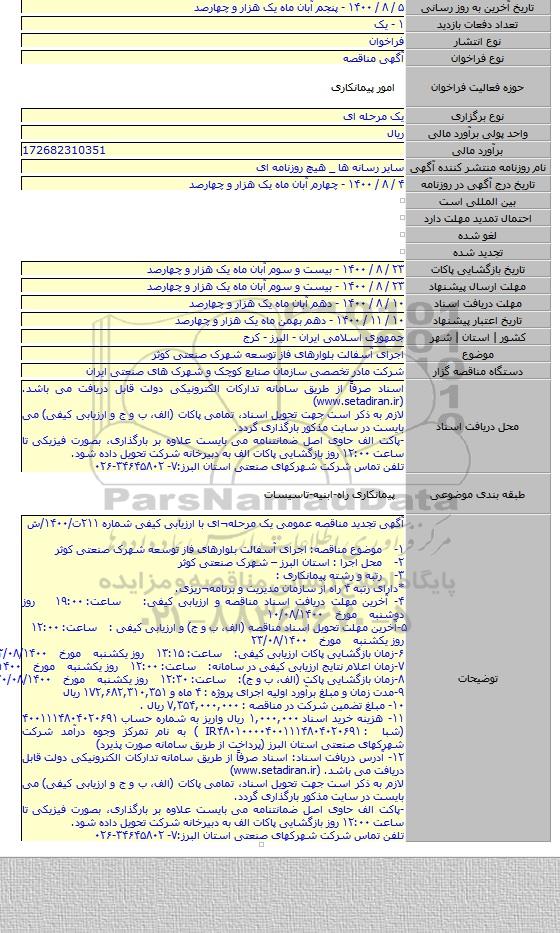 تاریخ آخرین به روز رسانی ۵ / ۸ / ۱۴۰۰ - پنجم آبان ماه یک هزار و چهارصد
تعداد دفعات بازدید ۱ - یک
نوع انتشار فراخوان
نوع فراخوان آگهی مناقصه
حوزه فعالیت فراخوان امور پیمانکاری
نوع برگزاری یک مرحله ای
واحد پولی برآورد مالی ریال
برآورد مالی 172682310351
نام روزنامه منتشر کننده آگهی سایر رسانه ها _ هیچ روزنامه ای
تاریخ درج آگهی در روزنامه ۴ / ۸ / ۱۴۰۰ - چهارم آبان ماه یک هزار و چهارصد
بین المللی است
احتمال تمدید مهلت دارد
لغو شده
تجدید شده
تاریخ بازگشایی پاکات ۲۳ / ۸ / ۱۴۰۰ - بیست و سوم آبان ماه یک هزار و چهارصد
مهلت ارسال پیشنهاد ۲۳ / ۸ / ۱۴۰۰ - بیست و سوم آبان ماه یک هزار و چهارصد
مهلت دریافت اسناد ۱۰ / ۸ / ۱۴۰۰ - دهم آبان ماه یک هزار و چهارصد
تاریخ اعتبار پیشنهاد ۱۰ / ۱۱ / ۱۴۰۰ - دهم بهمن ماه یک هزار و چهارصد
کشور | استان | شهر جمهوری اسلامی ایران - البرز - کرج
موضوع اجرای آسفالت بلوارهای فاز توسعه شهرک صنعتی کوثر
دستگاه مناقصه گزار شرکت مادر تخصصی سازمان صنایع کوچک و شهرک های صنعتی ایران
محل دریافت اسناد
اسناد صرفاً از طریق سامانه تدارکات الکترونیکی دولت قابل دریافت می باشد.
(www.setadiran.ir)
لازم به ذکر است جهت تحویل اسناد، تمامی پاکات (الف، ب و ج و ارزیابی کیفی) می
بایست در سایت مذکور بارگذاری گردد.
-پاکت الف حاوی اصل ضمانتنامه می بایست علاوه بر بارگذاری، بصورت فیزیکی تا
ساعت ۱۲:۰۰ روز بازگشایی پاکات الف به دبیرخانه شرکت تحویل داده شود.
تلفن تماس شرکت شهرکهای صنعتی استان البرز:۷- ۳۴۶۴۵۸۰۲-۰۲۶
طبقه بندی موضوعی پیمانکاری راه-ابنیه-تاسیسات
ParsNamadData
پایگاه اطلاع رسانی مناقصه و مزایده
توضیحات
آگهی تجدید مناقصه عمومی یک مرحله¬ای با ارزیابی کیفی شماره ۲۱۱ت/۱۴۰۰/ش
۱- موضوع مناقصه: اجرای آسفالت بلوارهای فاز توسعه شهرک صنعتی کوثر
۲- محل اجرا : استان البرز – شهرک صنعتی کوثر
۳- رتبه و رشته پیمانکاری :
*دارای رتبه ۴ راه از سازمان مدیریت و برنامه¬ریزی.
۴- آخرین مهلت دریافت اسناد مناقصه و ارزیابی کیفی: ساعت: ۱۹:۰۰ روز
دوشنبه مورخ ۱۰/۰۸/۱۴۰۰
۵-آخرین مهلت تحویل اسناد مناقصه (الف، ب و ج) و ارزیابی کیفی : ساعت: ۱۲:۰۰
روز یکشنبه مورخ ۲۳/۰۸/۱۴۰۰
۶-زمان بازگشایی پاکات ارزیابی کیفی: ساعت: ۱۳:۱۵ روز یکشنبه مورخ
۷-زمان اعلام نتایج ارزیابی کیفی در سامانه: ساعت: ۱۲:۰۰ روز یکشنبه مورخ
۸-زمان بازگشایی پاکت (الف، ب و ج): ساعت: ۱۲:۳۰ روز یکشنبه مورخ
۹-مدت زمان و مبلغ برآورد اولیه اجرای پروژه : ۴ ماه و ۱۷۲,۶۸۲,۳۱۰,۳۵۱ ریال
۱۰- مبلغ تضمین شرکت در مناقصه : ۷,۳۵۴,۰۰۰,۰۰۰ ریال .
۱۱- هزینه خرید اسناد ۱,۰۰۰,۰۰۰ ریال واریز به شماره حساب ۴۰۰۱۱۱۴۸۰۴۰۲۰۶۹۱
(شبا : IR۴۸۰۱۰۰۰۰۴۰۰۱۱۱۴۸۰۴۰۲۰۶۹۱ ) به نام تمرکز وجوه درآمد شرکت
شهرکهای صنعتی استان البرز (پرداخت از طریق سامانه صورت پذیرد)
۱۲- آدرس دریافت اسناد: اسناد صرفاً از طریق سامانه تدارکات الکترونیکی دولت قابل
دریافت می باشد. (www.setadiran.ir)
لازم به ذکر است جهت تحویل اسناد، تمامی پاکات (الف، ب و ج و ارزیابی کیفی) می
بایست در سایت مذکور بارگذاری گردد.
-پاکت الف حاوی اصل ضمانتنامه می بایست علاوه بر بارگذاری، بصورت فیزیکی تا
ساعت ۱۲:۰۰ روز بازگشایی پاکات الف به دبیرخانه شرکت تحویل داده شود.
تلفن تماس شرکت شهرکهای صنعتی استان البرز:۷- ۳۴۶۴۵۸۰۲-۰۲۶